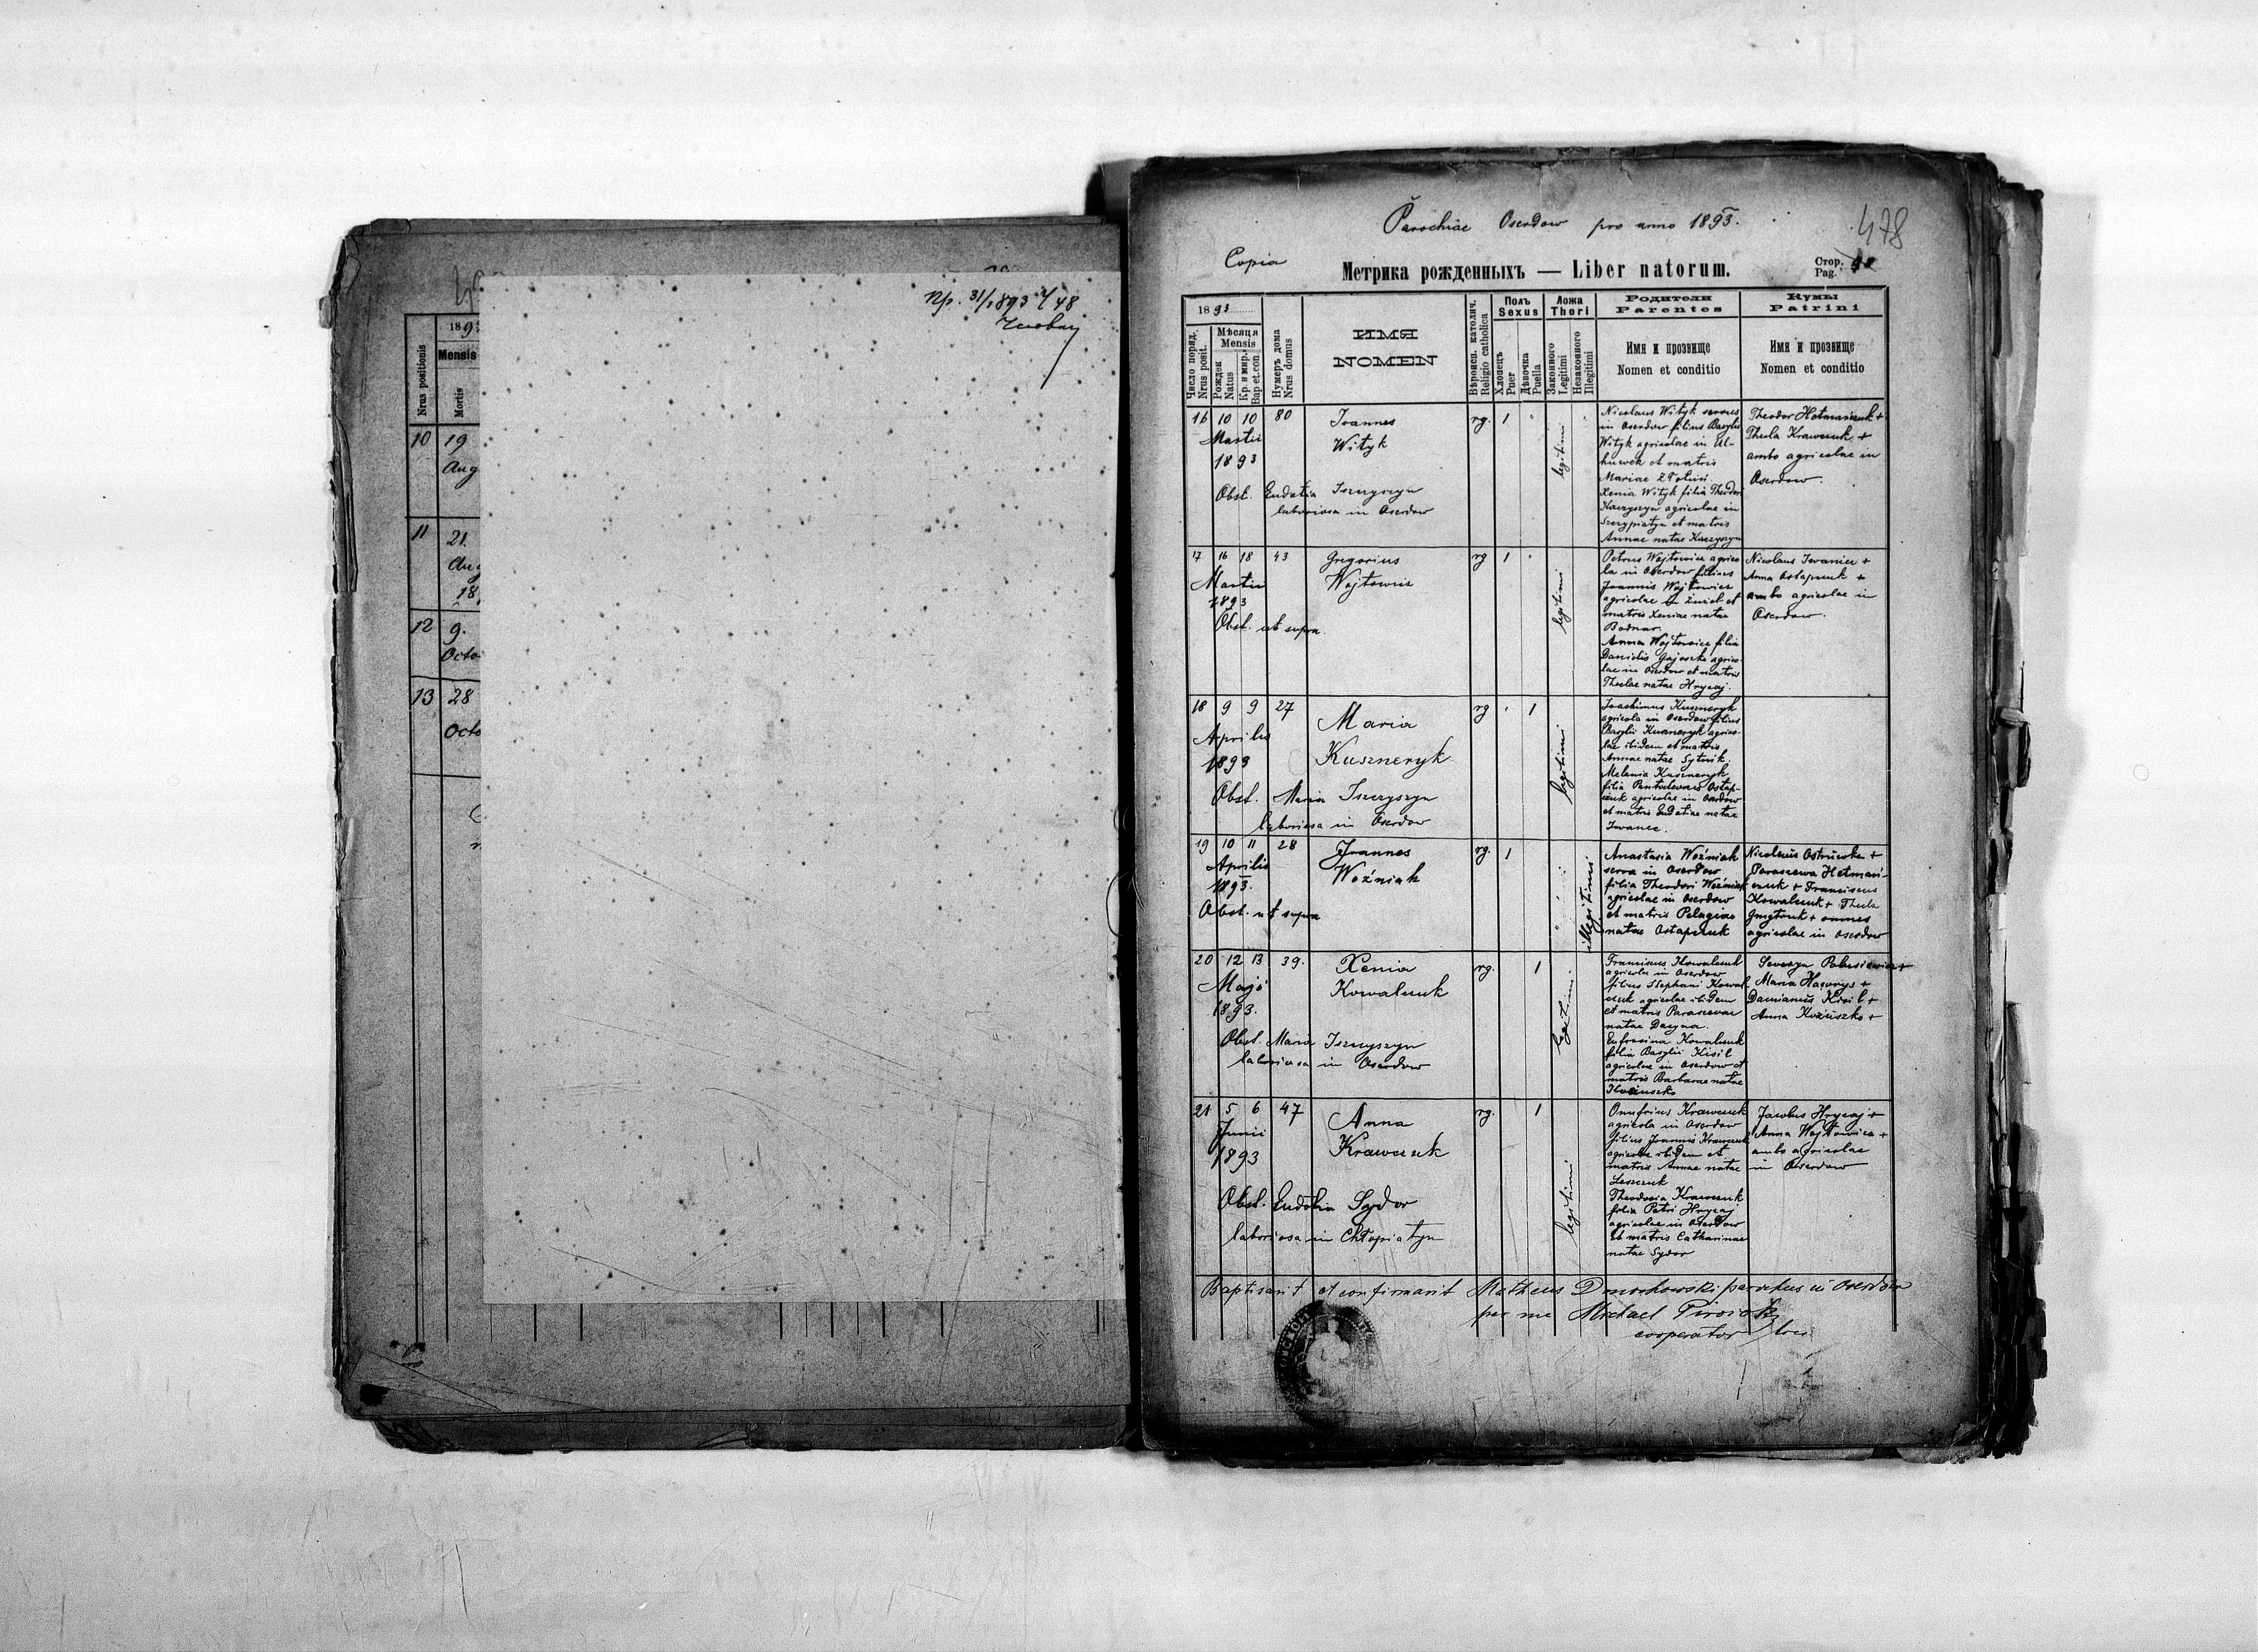 10 19
Aug
11 21.
Aug
18
12 9.
Octo
13 28
Octo
Nrus positionis
189
Mensis
Mortis
Пр. 31/1893 Ч 48
Parochiae Oserdow pro anno 1893.
478
Copia
Метрика рожденныхъ — Liber natorum.
Стор.
Pag.
1893
Число поряд.
Nrus posit.
Мѣсяця
Mensis
Рожден
Natus
Кр. и мир.
Bap et.con
Нумеръ дома
Nrus domus
ИМЯ
NOMEN
Вѣроисп. католич.
Religio catholica
Полъ
Sexus
Хлопецъ
Puer
Дѣвочка
Puella
Ложа
Thori
Законного
Legitimi
Незаконного
Illegitimi
Родители
Parentes
Имя и прозвище
Nomen et conditio
Кумы
Patrini
Имя и прозвище
Nomen et conditio
16 10 10 80 Joannes rg. 1
Martii Wityk
1893
legitimi
Obst. Eudokia Iszczyszyn
laboriosa in Oserdow
Nicolaus Wityk servus
in Oserdow filius Basylii
Wityk agricolae in Ul-
huwek et matris
Mariae
Xenia Wityk filia Theodori
Kaczyszyn agricolae in
et matris
Annae natae Kaczyszyn
Theodor Hetmańczuk +
Thecla Krawczuk +
ambo agricolae in
Oserdow.
17 16 18 43 Gregorius rg 1
Martii Wojtowicz
1893
legitimi
Obst. ut supra
Petrus Wojtowicz agrico-
la in Oserdow filius
Joannis Wojtowicz
agricolae in Żniat et
matris Xeniae natae
Bodnar.
Anna Wojtowicz filia
Danielis Gajoszko agrico-
lae in Oserdow et matris
Theclae natae Hrycaj.
Nicolaus Iwaniec +
Anna Ostapczuk +
ambo agricolae in
Oserdow.
18 9 9 27 Maria rg 1
Aprilis Kuszneryk
1893
legitimi
Obst. Maria Iszczyszyn
laboriosa in Oserdow
Joachimus Kuszneryk
agricola in Oserdow filius
Basylii Kuszneryk agrico-
lae ibidem et matris
Annae natae Sytnik.
Melania Kuszneryk
filia Pantalemonis Ostap-
czuk agricolae in Oserdow
et matris Eudokiae natae
Iwanec.
19 10 11 28 Joannes rg. 1
Aprilis Woźniak
1893.
illegitimi
Obst. ut supra
Anastasia Woźniak
serva in Oserdow
filia Theodori Woźniak
agricolae in Oserdow
et matris Pelagiae
natae Ostapczuk
Nicolaus +
Parascewa Hetmań-
czuk + Franciscus
Kowalczuk + Thecla
Gmytruk + omnes
agricolae in Oserdow
20 12 13 39. Xenia rg. 1
Maji Kowalczuk
1893.
legitimi
Obst. Maria Iszczyszyn
laboriosa in Oserdow
Franciscus Kowalczuk
agricola in Oserdow
filius Stephani Kowal
czuk agricolae ibidem
et matris Parascevae
natae Dacyna.
Eufrosina Kowalczuk
filia Basylii Kisil
agricolae in Oserdow et
matris Barbarae natae
Seweryn +
Maria Hawrys +
Damianus Kisil +
Anna Koźuszko +
21 5 6 47 Anna rg. 1
Junii Krawczuk
1893
legitimi
Obst. Eudokia Sydor
laboriosa in Chłopiatyn
Onufrius Krawczuk
agricola in Oserdow
filius Joannis Krawczuk
agricolae ibidem et
matris Annae natae
Leszczuk
Theodosia Krawczuk
filia Petri Hrycaj
agricolae in Oserdow
et matris Catharinae
natae Sydor
Jacobus Hrycaj +
Anna Wojtowicz +
ambo agricolae
in Oserdow
Baptisavit et confirmavit Matheus Dmochowski parochus in Oserdow
per me Michael
cooperator loci